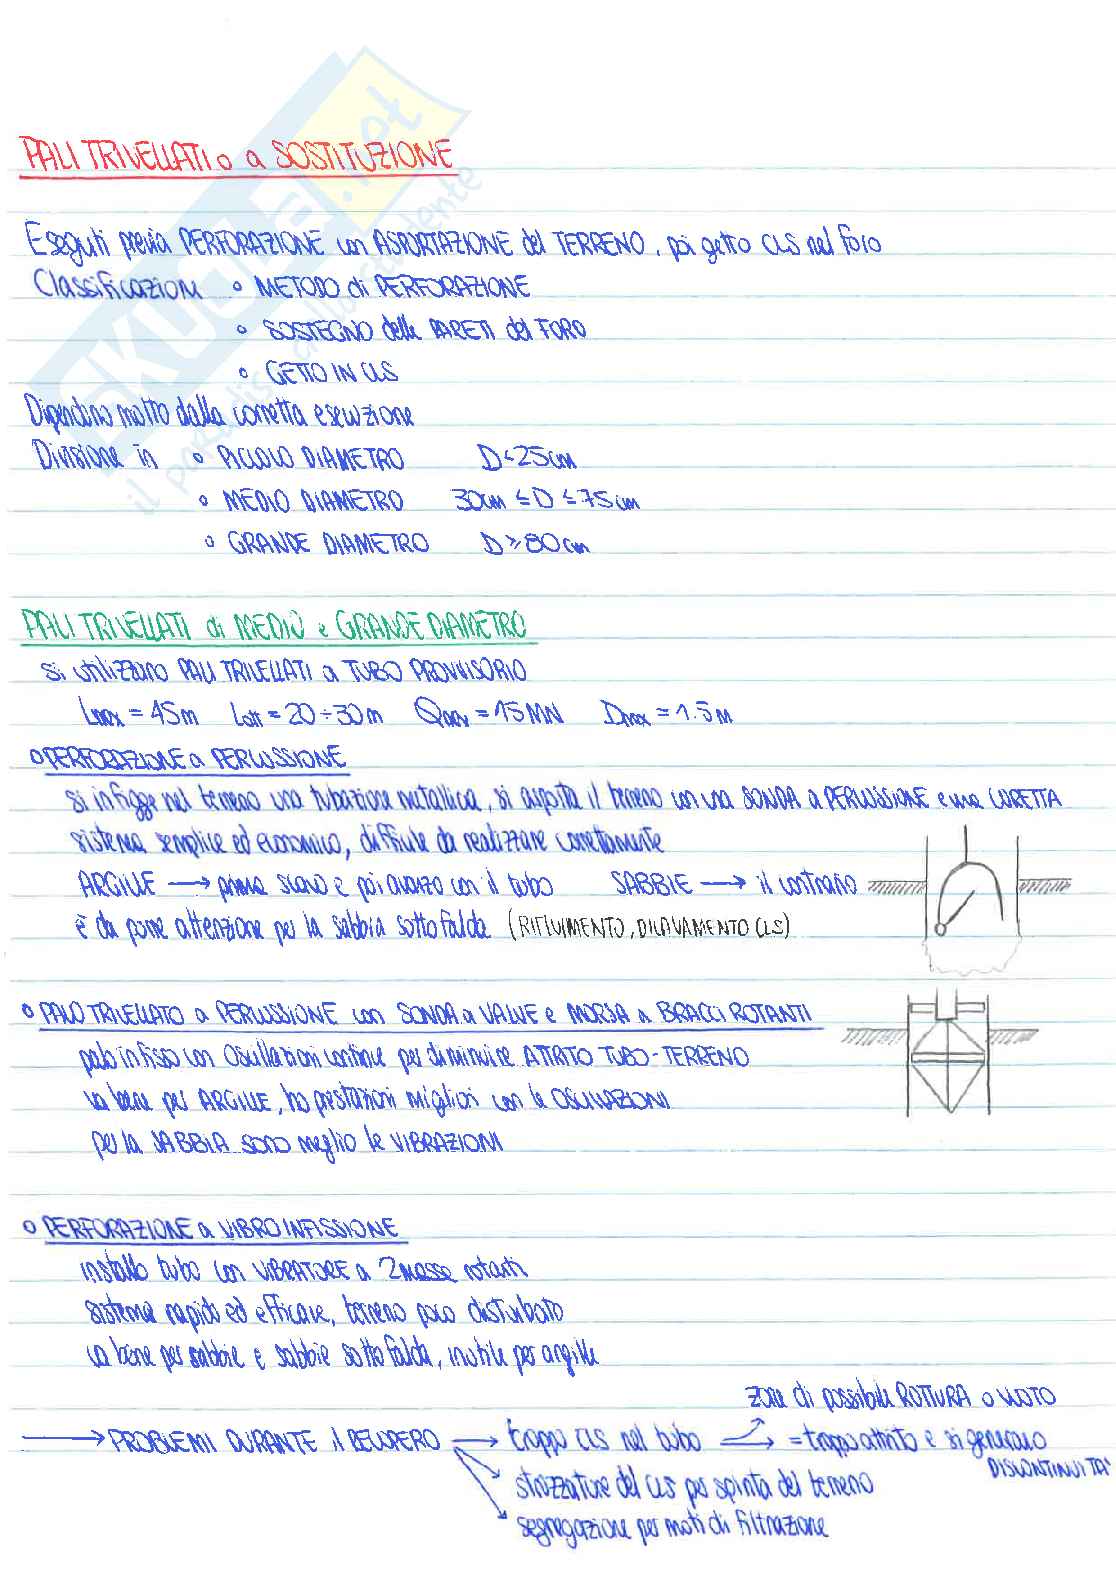 PALI TRIVELLATI o a SOSTITUZIONE
Eseguiti previa PERFORAZIONE con ASPORTAZIONE del TERRENO, poi getto CLS nel foro
Classificazioni ° METODO di PERFORAZIONE
° SOSTEGNO delle PARETI del FORO
° GETTO IN CLS
Dipendono molto dalla corretta esecuzione
Divisione in ° PICCOLO DIAMETRO D<25cm
° MEDIO DIAMETRO 30cm ≤ D ≤ 75cm
° GRANDE DIAMETRO D≥80cm
PALI TRIVELLATI di MEDIO e GRANDE DIAMETRO
si utilizzano PALI TRIVELLATI a TUBO PROVVISORIO
Lmax = 45m Lott = 20÷30m Qmax = 15MN Dmax = 1.5m
° PERFORAZIONE a PERCUSSIONE
si infigge nel terreno una tubazione metallica, si asporta il terreno con una SONDA a PERCUSSIONE e una CURETTA
sistema semplice ed economico, difficile da realizzare correttamente
ARGILLE → prima scavo e poi avanzo con il tubo SABBIE → il contrario
è da porre attenzione per la sabbia sotto falda (RIFLUIMENTO, DILAVAMENTO CLS)
° PALO TRIVELLATO a PERCUSSIONE con SONDA a VALVE e MORSA a BRACCI ROTANTI
palo infisso con oscillazioni continue per diminuire ATTRITO TUBO-TERRENO
va bene per ARGILLE, ho prestazioni migliori con le OSCILLAZIONI
per la SABBIA sono meglio le VIBRAZIONI
° PERFORAZIONE a VIBROINFISSIONE
installo tubo con VIBRATORE a 2 masse rotanti
sistema rapido ed efficace, terreno poco disturbato
va bene per sabbie e sabbie sotto falda, inutile per argille
zone di possibile ROTTURA o VUOTO
→ PROBLEMI DURANTE il RECUPERO → troppo CLS nel tubo → = troppo attrito e si generano
DISCONTINUITA'
strozzature del CLS per spinta del terreno
segregazione per moti di filtrazione
SKUOLA.net
il paradiso dello studente